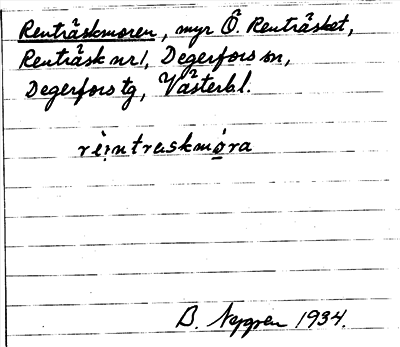 Renträskmoren, myr Ö. Renträsket,
Renträsk nr 1, Degerfors sn,
Degerfors tg, Västerb.l.
rèi̯ntraskmǫra
B. 1934.